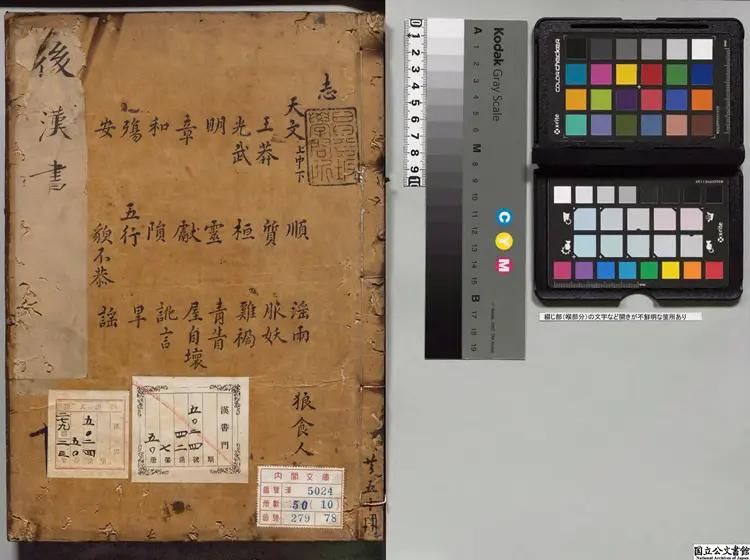 後漢書
志
天文上中下
王莽
光武
明
章
和
殤
安
順
質
桓
靈
獻
隕
五行
貌不恭
淫雨
服妖
雞禍
青眚
屋自壞
訛言
旱
謠
狼食人
漢書門
五〇二四號
四二函
七架
五〇冊
類
五〇二四
五〇
二七九
二三
内閣文庫
番號 漢 5024
冊數 50 (10)
函號 279 78
共五十冊
0 1 2 3 4 5 6 7 8 9 10
Kodak Gray Scale
A 1 2 3 4 5 6 M 8 9 10 11 12 13 14 15 B 17 18 19
C
Y
M
colorchecker
x-rite
x-rite
綴じ部(喉部分)の文字など開きが不鮮明な箇所あり
国立公文書館
National Archives of Japan